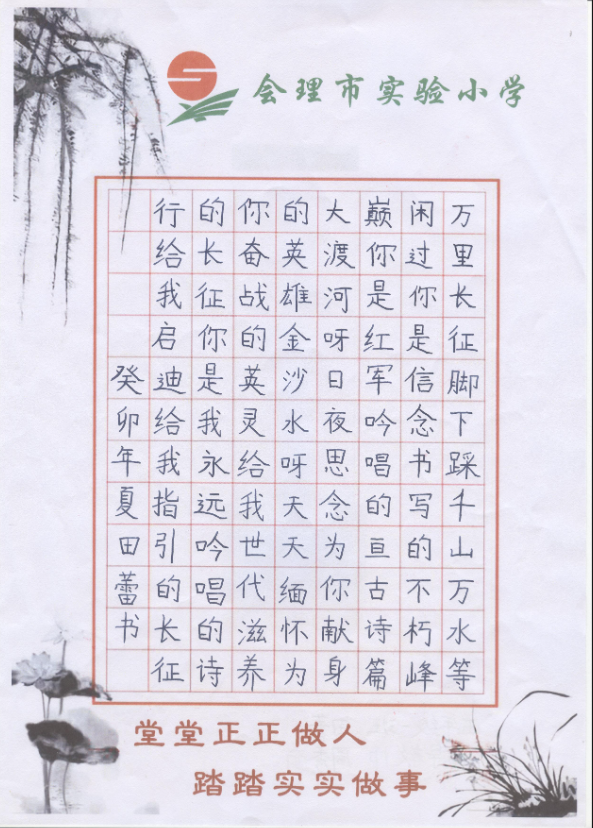 会理市实验小学
万里长征脚下踩千山万水等
闲过你是信念书写的不朽峰
巅你是红军吟唱的亘古诗篇
大渡河呀日夜思念为你献身
的英雄金沙水呀天天缅怀为
你奋战的英灵给我世代滋养
的长征你是我永远吟唱的诗
行给我启迪给我指引的长征
癸卯年夏田蕾书
堂堂正正做人
踏踏实实做事